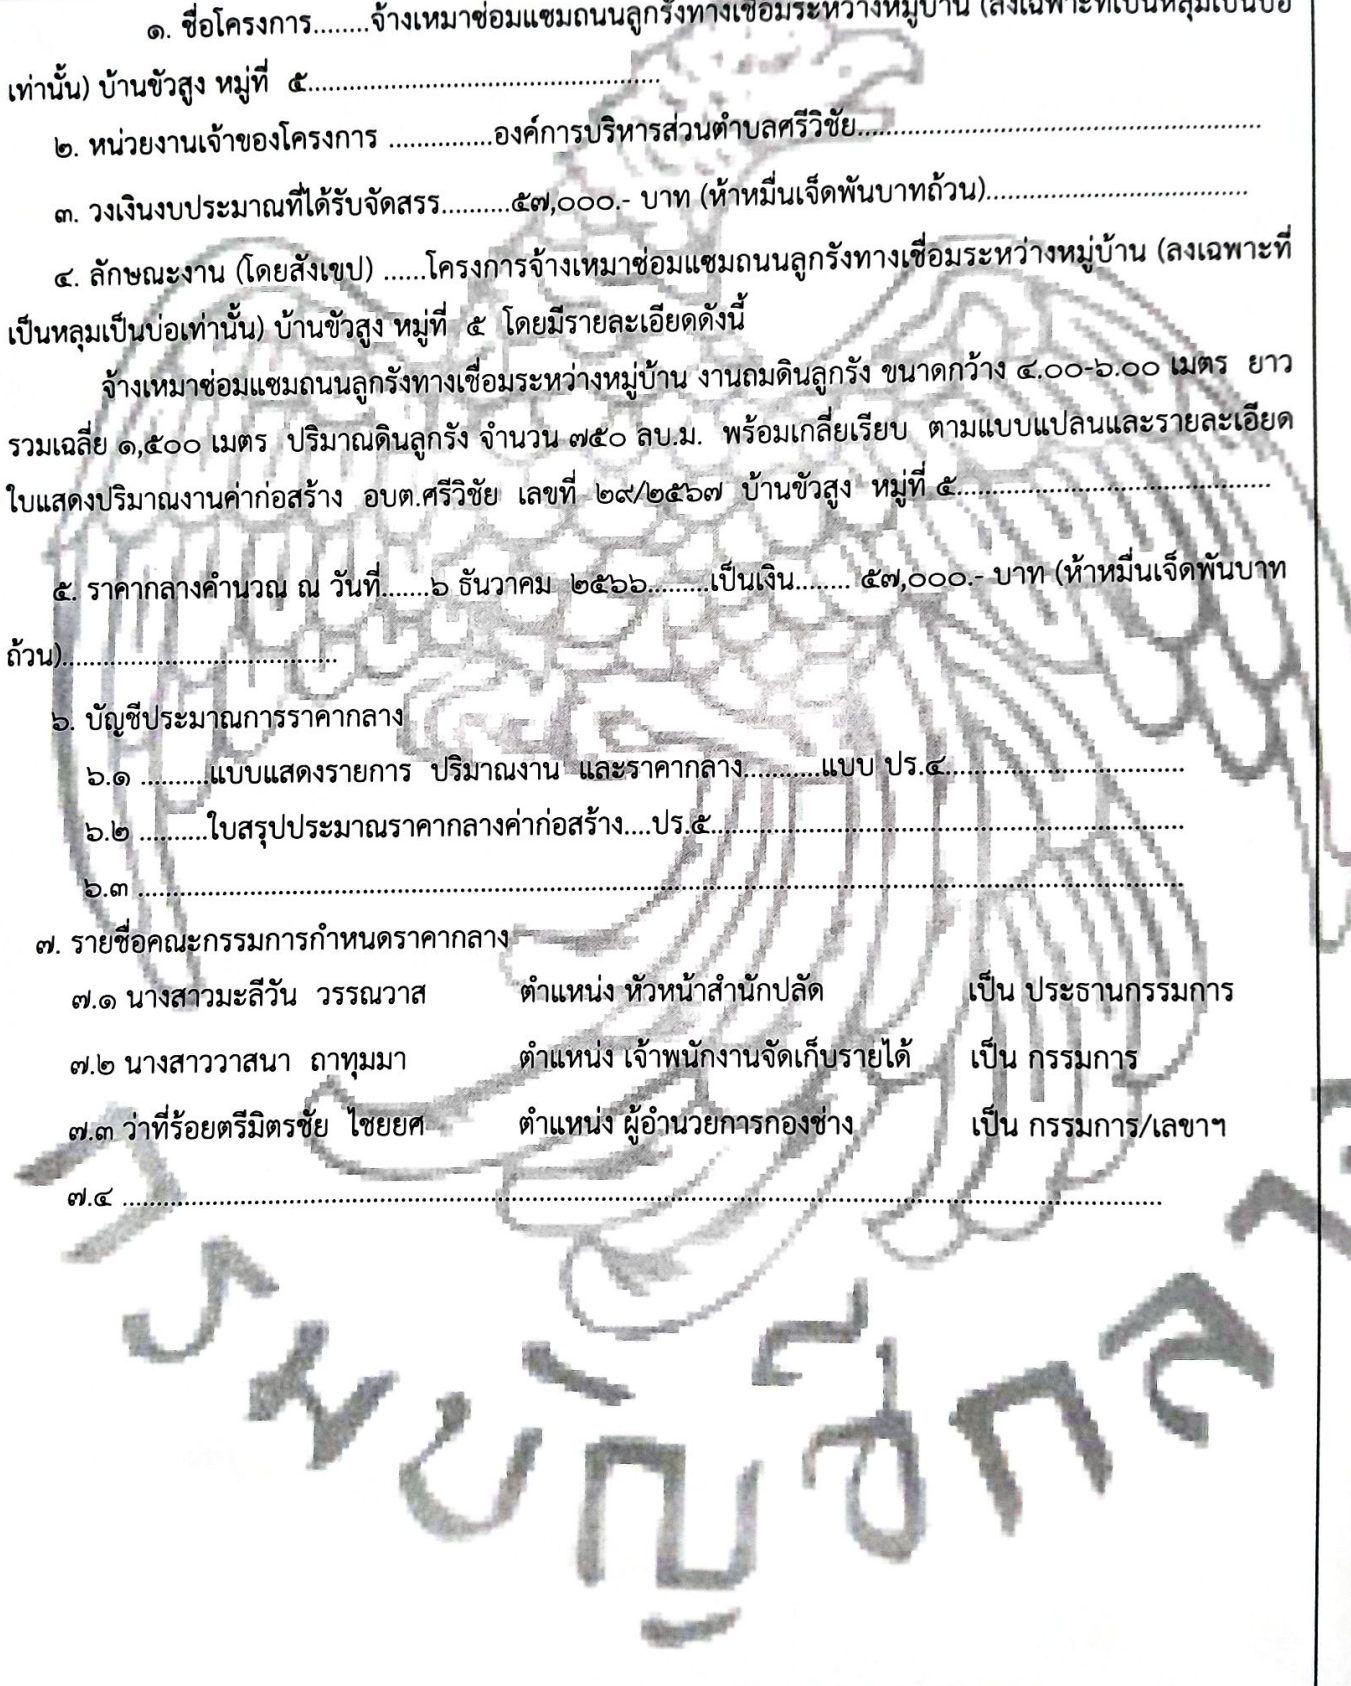 ๑. ชื่อโครงการ........จ้างเหมาซ่อมแซมถนนลูกรังทางเชื่อมระหว่างหมู่บ้าน (ลงเฉพาะที่เป็นหลุมเป็นบ่อ
เท่านั้น) บ้านขัวสูง หมู่ที่ ๕...................................................
๒. หน่วยงานเจ้าของโครงการ ...............องค์การบริหารส่วนตำบลศรีวิชัย..........................................................
๓. วงเงินงบประมาณที่ได้รับจัดสรร..........๕๗,๐๐๐.- บาท (ห้าหมื่นเจ็ดพันบาทถ้วน)......................................
๔. ลักษณะงาน (โดยสังเขป) ......โครงการจ้างเหมาซ่อมแซมถนนลูกรังทางเชื่อมระหว่างหมู่บ้าน (ลงเฉพาะที่
เป็นหลุมเป็นบ่อเท่านั้น) บ้านขัวสูง หมู่ที่ ๕ โดยมีรายละเอียดดังนี้
จ้างเหมาซ่อมแซมถนนลูกรังทางเชื่อมระหว่างหมู่บ้าน งานถมดินลูกรัง ขนาดกว้าง ๔.๐๐-๖.๐๐ เมตร ยาว
รวมเฉลี่ย ๑,๕๐๐ เมตร ปริมาณดินลูกรัง จำนวน ๗๕๐ ลบ.ม. พร้อมเกลี่ยเรียบ ตามแบบแปลนและรายละเอียด
ใบแสดงปริมาณงานค่าก่อสร้าง อบต.ศรีวิชัย เลขที่ ๒๙/๒๕๖๗ บ้านขัวสูง หมู่ที่ ๕..............................................
๕. ราคากลางคำนวณ ณ วันที่.......๖ ธันวาคม ๒๕๖๖.........เป็นเงิน........ ๕๗,๐๐๐.- บาท (ห้าหมื่นเจ็ดพันบาท
ถ้วน)........................................
๖. บัญชีประมาณการราคากลาง
๖.๑ ..........แบบแสดงรายการ ปริมาณงาน และราคากลาง...........แบบ ปร.๔..................................
๖.๒ ..........ใบสรุปประมาณราคากลางค่าก่อสร้าง....ปร.๕....................................................................
๖.๓ ......................................................................................................................................................
๗. รายชื่อคณะกรรมการกำหนดราคากลาง
๗.๑ นางสาวมะลีวัน วรรณวาส ตำแหน่ง หัวหน้าสำนักปลัด เป็น ประธานกรรมการ
๗.๒ นางสาววาสนา ถาทุมมา ตำแหน่ง เจ้าพนักงานจัดเก็บรายได้ เป็น กรรมการ
๗.๓ ว่าที่ร้อยตรีมิตรชัย ไชยยศ ตำแหน่ง ผู้อำนวยการกองช่าง เป็น กรรมการ/เลขาฯ
๗.๔ ......................................................................................................................................................
กรมบัญชีกลาง